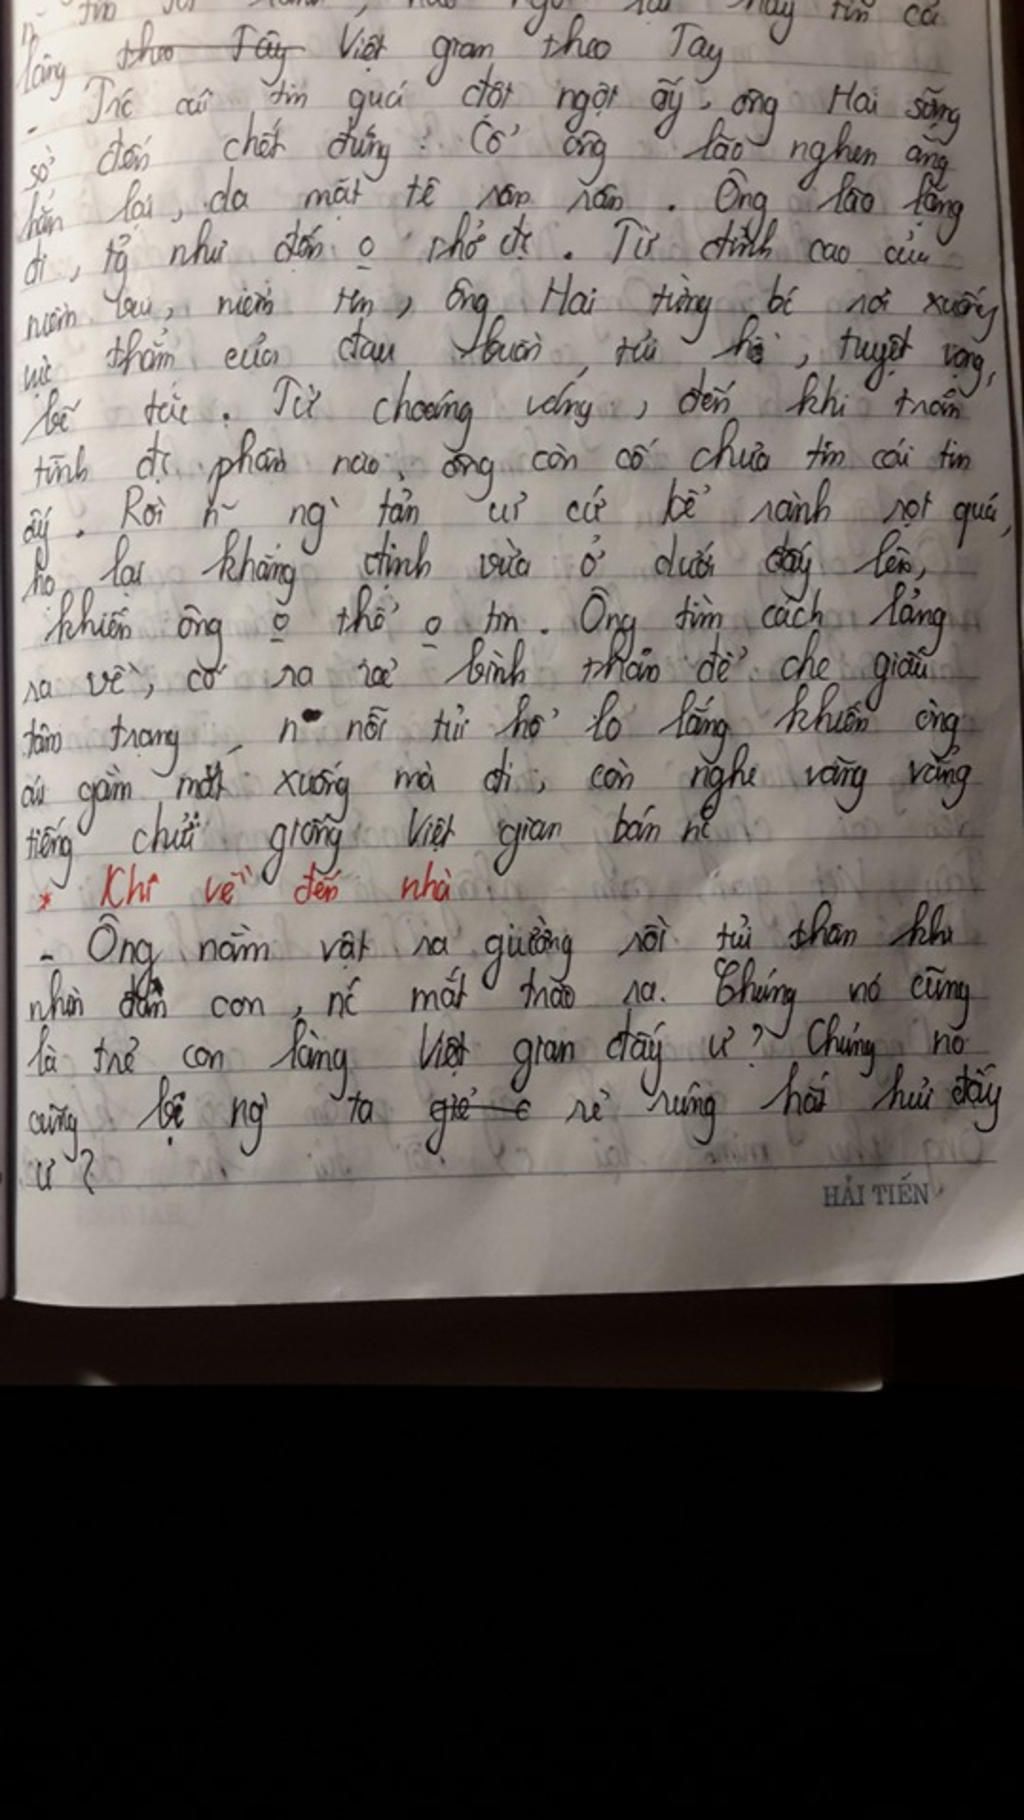 tin cả
làng theo Tây Việt gian theo Tây
- Trc cái tin quá đột ngột ấy, ông Hai sững
sờ đến chết đứng. Cổ ông lão nghẹn ắng
hẳn lại, da mặt tê rân rân. Ông lão lặng
đi, tg như đến o thở đc. Từ đỉnh cao của
niềm vui, niềm tin, ông Hai từng bc rơi xuống
vực thẳm của đau buồn, tủi hổ, tuyệt vọng,
bế tắc. Từ choáng váng, đến khi trấn
tĩnh đc phần nào, ông còn cố chưa tin cái tin
ấy. Rồi n~ ng` tản cư cứ kể rành rọt quá,
họ lại khẳng định vừa ở dưới đấy lên,
khiến ông o thể o tin. Ông tìm cách lảng
ra về, cố ra vẻ bình thản để che giấu
tâm trạng, n nỗi tủi hổ lo lắng khiến ông
cúi gằm mặt xuống mà đi, còn nghe văng vẳng
tiếng chửi giống Việt gian bán nc
* Khi về đến nhà
- Ông nằm vật ra giường rồi tủi thân khi
nhìn đàn con, nc mắt trào ra. Chúng nó cũng
là trẻ con làng Việt gian đấy ư? Chúng nó
cũng bị ng` ta giẻ c rẻ rúng hắt hủi đấy
ư?
HẢI TIẾN